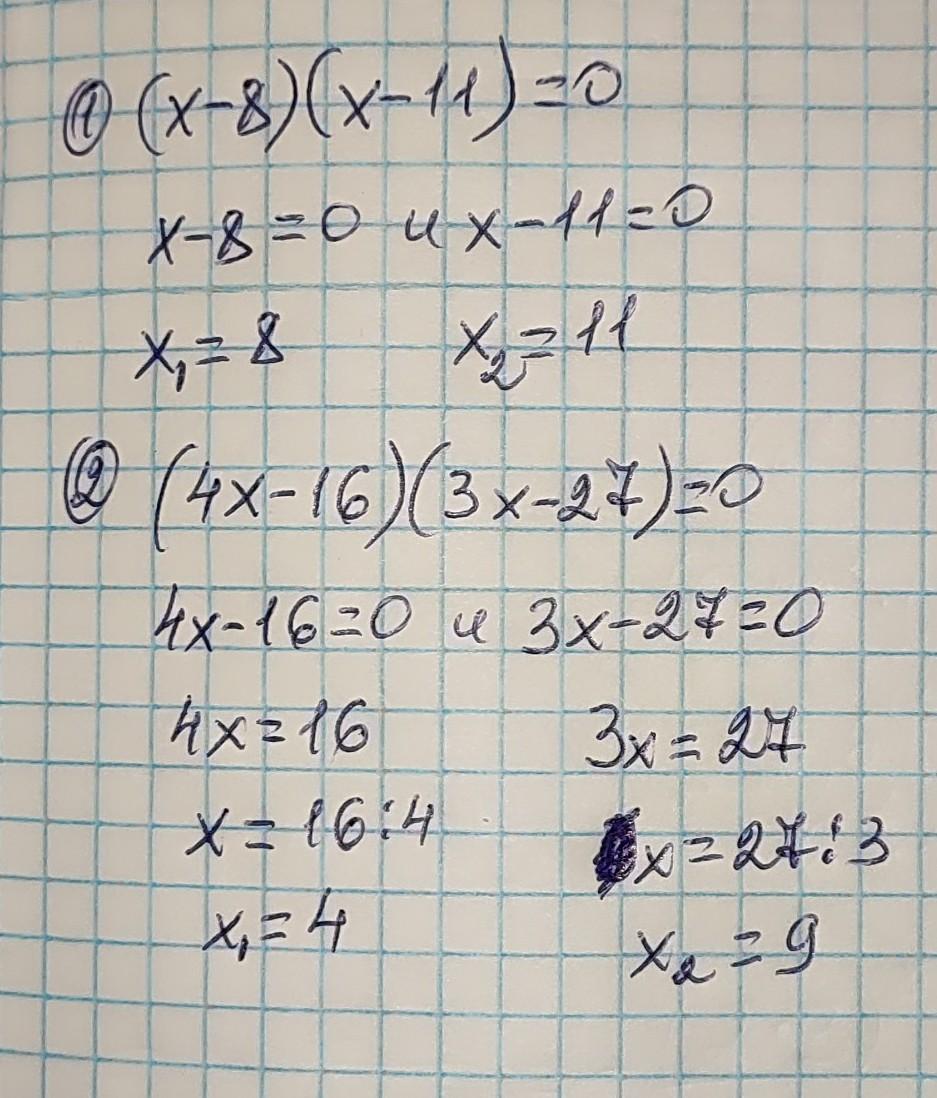 ① (x-8)(x-11)=0
x-8=0 и x-11=0
x₁=8 x₂=11
② (4x-16)(3x-27)=0
4x-16=0 и 3x-27=0
4x=16 3x=27
x=16:4 x=27:3
x₁=4 x₂=9